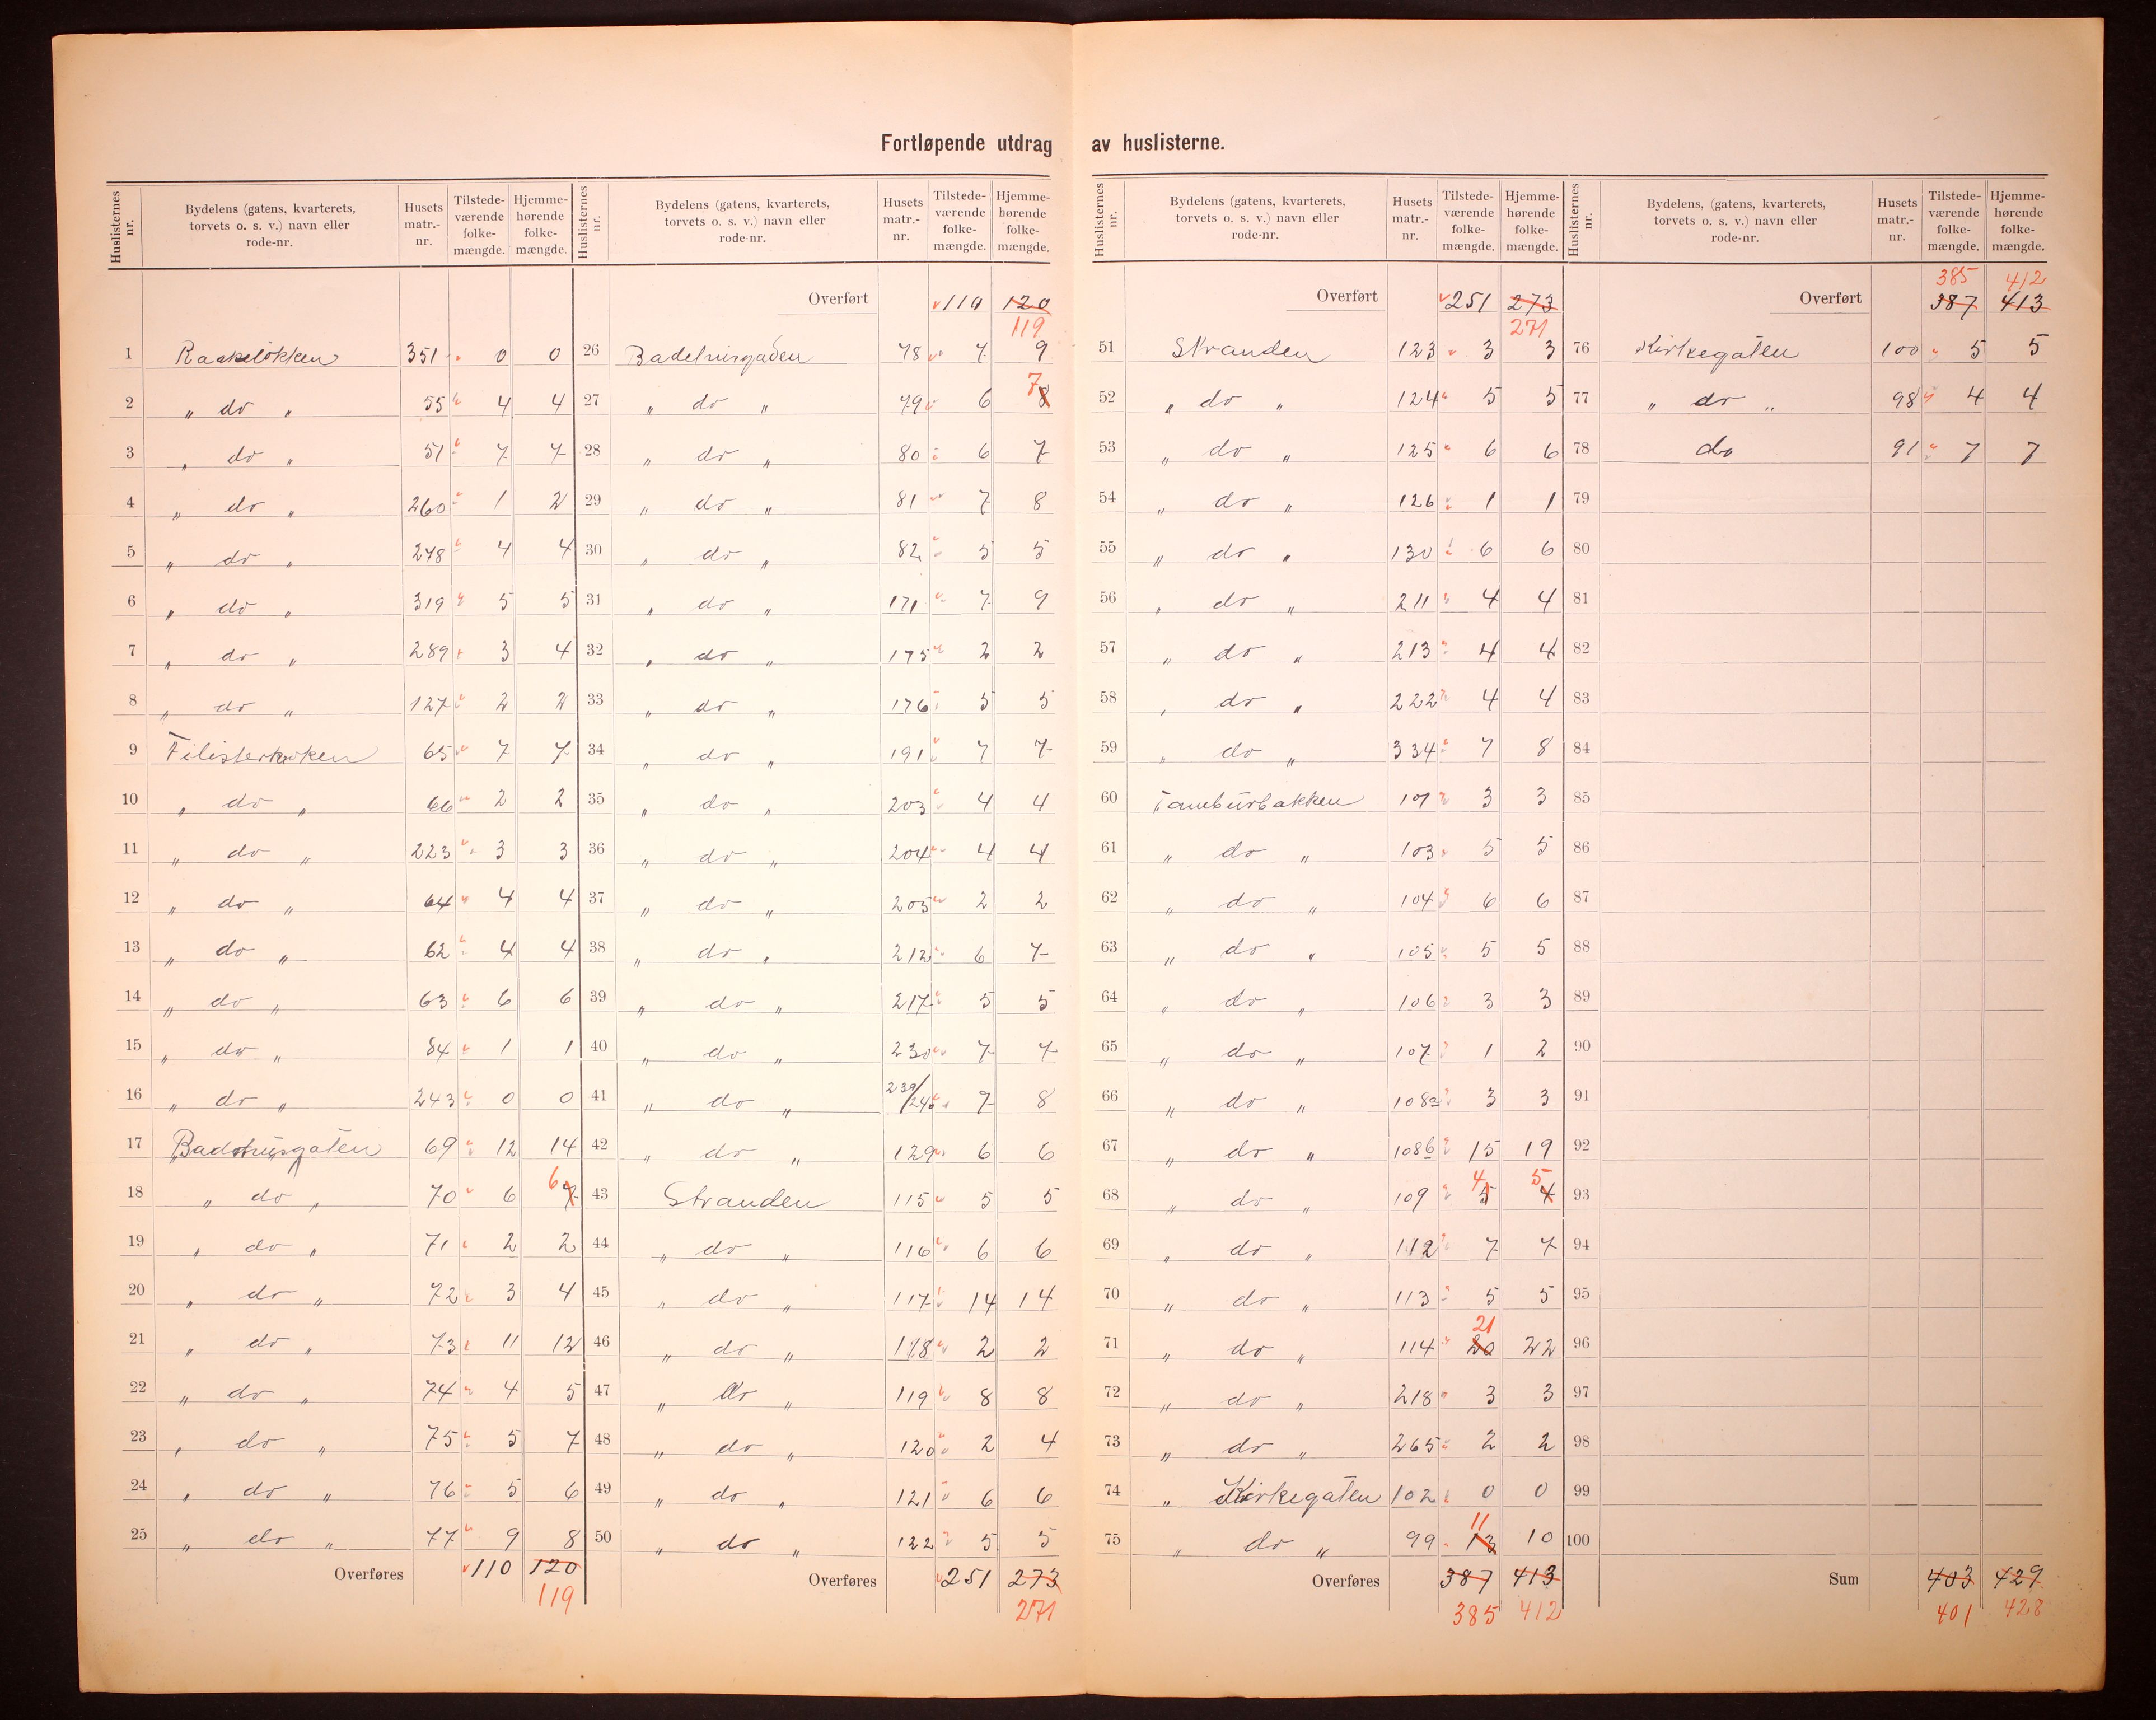 Fortløpende utdrag av huslisterne.
Huslisternes nr. | Bydelens (gatens, kvarterets, torvets o. s. v.) navn eller rode-nr. | Husets matr.-nr. | Tilstede-værende folke-mængde. | Hjemme-hørende folke-mængde.
1 Raakeløkken 351 0 0
2 " do " 55 4 4
3 " do " 51 7 7
4 " do " 260 1 2
5 " do " 278 4 4
6 " do " 319 5 5
7 " do " 289 3 4
8 " do " 127 2 2
9 Filisterkroken 65 7 7
10 " do " 66 2 2
11 " do " 223 3 3
12 " do " 64 4 4
13 " do " 62 4 4
14 " do " 63 6 6
15 " do " 84 1 1
16 " do " 243 0 0
17 Badehusgaten 69 12 14
18 " do " 70 6 7 6
19 " do " 71 2 2
20 " do " 72 3 4
21 " do " 73 11 12
22 " do " 74 4 5
23 " do " 75 5 7
24 " do " 76 5 6
25 " do " 77 9 8
Overføres 110 120
119
Huslisternes nr. | Bydelens (gatens, kvarterets, torvets o. s. v.) navn eller rode-nr. | Husets matr.-nr. | Tilstede-værende folke-mængde. | Hjemme-hørende folke-mængde.
Overført 110 120
119
26 Badehusgaden 78 7 9
27 " do " 79 6 8 7
28 " do " 80 6 7
29 " do " 81 7 8
30 " do " 82 5 5
31 " do " 171 7 9
32 " do " 175 2 2
33 " do " 176 5 5
34 " do " 191 7 7
35 " do " 203 4 4
36 " do " 204 4 4
37 " do " 205 2 2
38 " do " 212 6 7
39 " do " 217 5 5
40 " do " 230 7 7
41 " do " 239/240 7 8
42 " do " 129 6 6
43 Stranden 115 5 5
44 " do " 116 6 6
45 " do " 117 14 14
46 " do " 118 2 2
47 " do " 119 8 8
48 " do " 120 2 4
49 " do " 121 6 6
50 " do " 122 5 5
Overføres 251 273
271
Huslisternes nr. | Bydelens (gatens, kvarterets, torvets o. s. v.) navn eller rode-nr. | Husets matr.-nr. | Tilstede-værende folke-mængde. | Hjemme-hørende folke-mængde.
Overført 251 273
271
51 Stranden 123 3 3
52 " do " 124 5 5
53 " do " 125 6 6
54 " do " 126 1 1
55 " do " 130 6 6
56 " do " 211 4 4
57 " do " 213 4 4
58 " do " 222 4 4
59 " do " 334 7 8
60 Tamburbakken 101 3 3
61 " do " 103 5 5
62 " do " 104 6 6
63 " do " 105 5 5
64 " do " 106 3 3
65 " do " 107 1 2
66 " do " 108a 3 3
67 " do " 108b 15 19
68 " do " 109 5 4 4 5
69 " do " 112 7 7
70 " do " 113 5 5
71 " do " 114 20 21 22
72 " do " 218 3 3
73 " do " 265 2 2
74 " Kirkegaten 102 0 0
75 " do " 99 13 11 10
Overføres 387 413
385 412
Huslisternes nr. | Bydelens, (gatens, kvarterets, torvets o. s. v.) navn eller rode-nr. | Husets matr.-nr. | Tilstede-værende folke-mængde. | Hjemme-hørende folke-mængde.
385 412
Overført 387 413
76 Kirkegaten 100 5 5
77 " do " 98 4 4
78 do 91 7 7
79
80
81
82
83
84
85
86
87
88
89
90
91
92
93
94
95
96
97
98
99
100
Sum 403 429
401 428